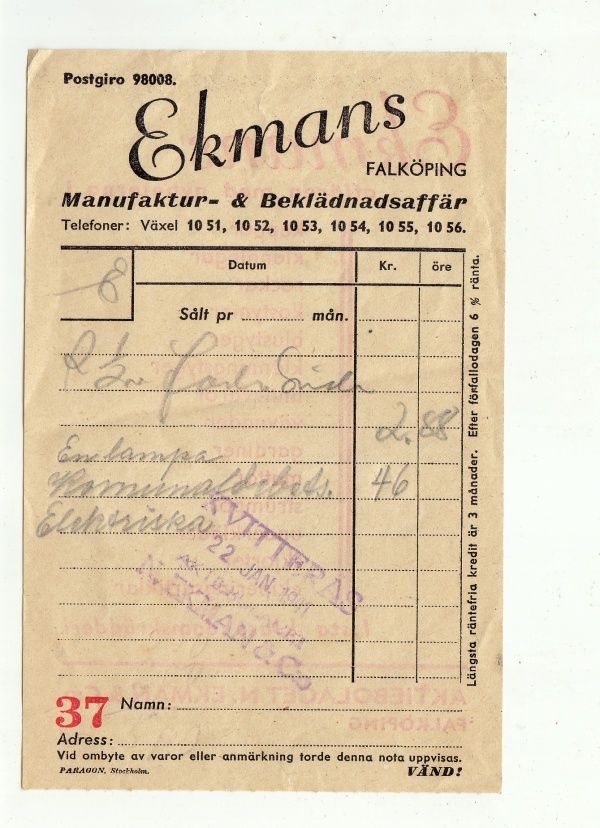 Postgiro 98008.
Ekmans
FALKÖPING
Manufaktur- & Beklädnadsaffär
Telefoner: Växel 10 51, 10 52, 10 53, 10 54, 10 55, 10 56.
Datum Kr. öre
Sålt pr ............ mån.
2.88
En lampa 46
Elektriska
KVITTERAS
22 JAN
AKTIEBOLAGET
N. EKMAN & Co
Längsta räntefria kredit är 3 månader. Efter förfallodagen 6 % ränta.
37 Namn:
Adress:
Vid ombyte av varor eller anmärkning torde denna nota uppvisas.
PARAGON, Stockholm. VÄND!
AKTIEBOLAGET N. EKMAN & Co
FALKÖPING